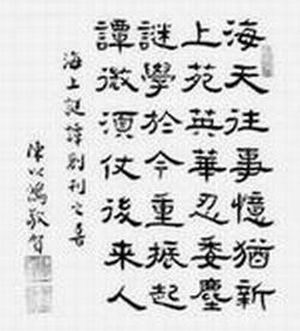 海天往事憶猶新
上苑英華忍委塵
謎學於今重振起
譚微須仗後來人
海上謎譚創刊之喜
陳以鴻敬賀